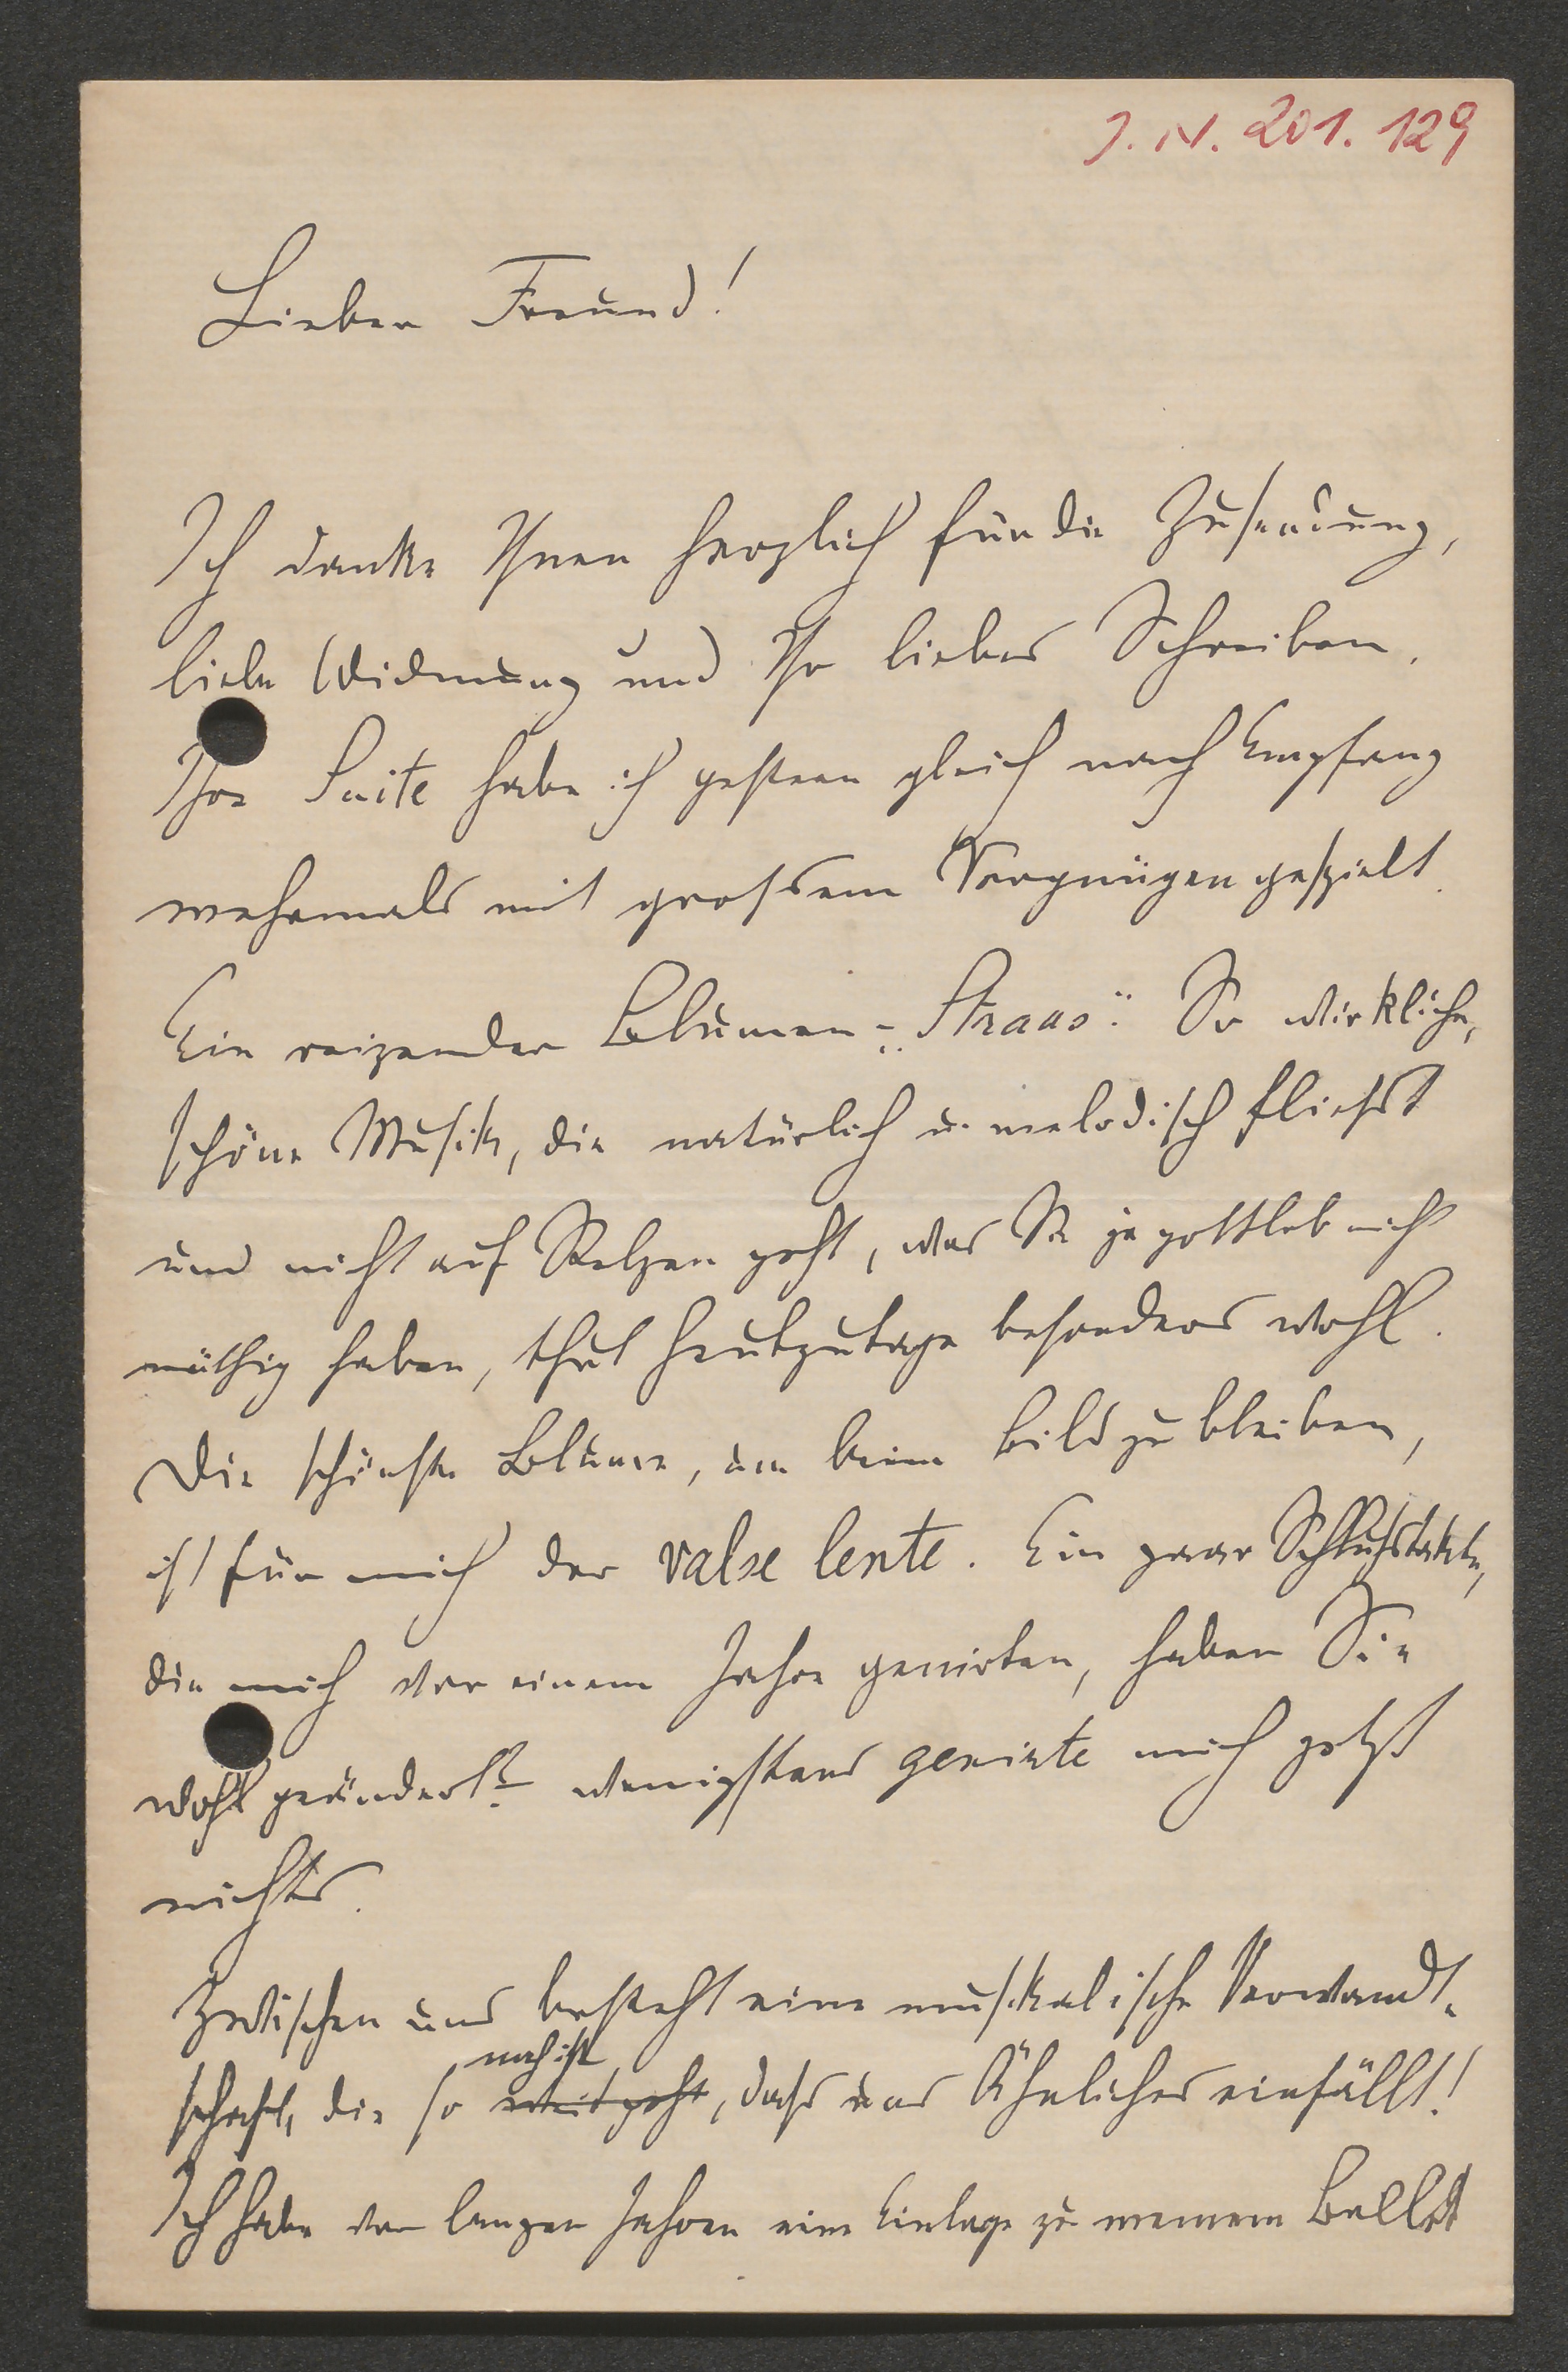 J. N. 201. 129
Lieber Freund!
Ich danke Ihnen herzlich für die Zusendung,
liebe Widmung und Ihr liebes Schreiben.
Ihre Suite habe ich gestern gleich nach Empfang
mehrmals mit grossem Vergnügen gespielt.
Ein reizender Blumen-„Straus“. So wirkliche,
schöne Musik, die natürlich u. melodisch fliesst
und nicht auf Stelzen geht, was Sie ja gottlob nicht
nöthig haben, thut heutzutage besonders wohl.
Die schönste Blume, um beim Bild zu bleiben,
ist für mich der valse lente. Ein paar Schlusstakte,
die mich vor einem Jahre genirten, haben Sie
wohl geändert? wenigstens genirte mich jetzt
nichts.
Zwischen uns besteht eine musikalische Verwandt-
nah ist
schaft, die so weit geht, dass uns Ähnliches einfällt!
Ich habe vor langen Jahren eine Einlage zu meinem Ballet